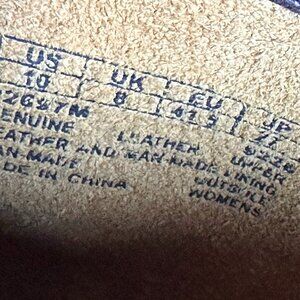 US UK EU JP
10 8 41.5 27
26847M
GENUINE LEATHER UPPER
LEATHER AND MAN MADE LINING
MAN MADE OUTSOLE
MADE IN CHINA WOMENS